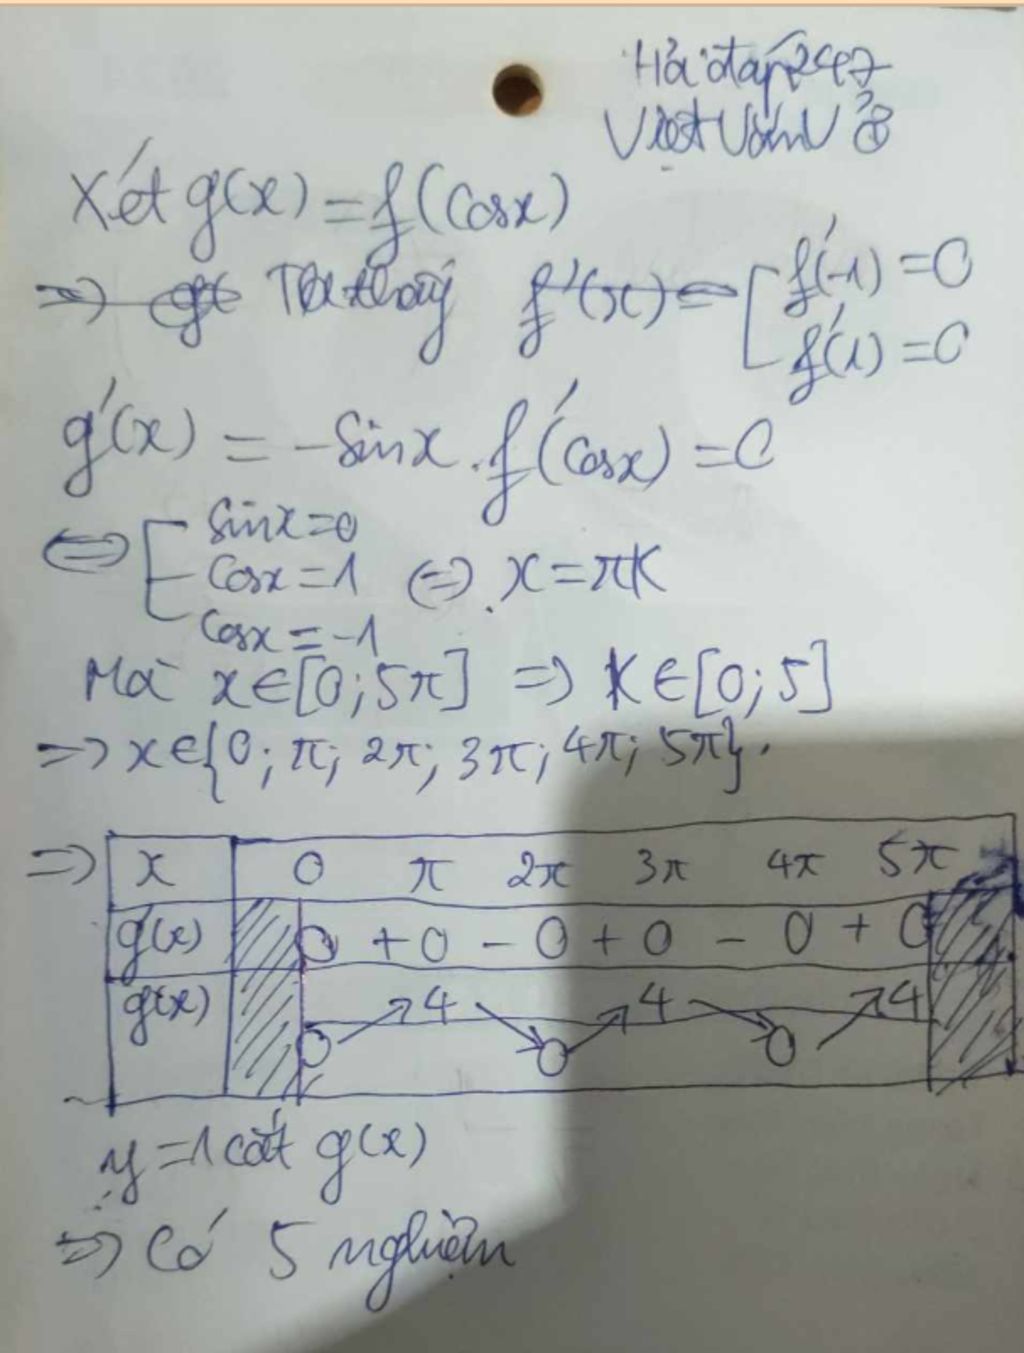 Hỏi đáp 247
Xét g(x) = f(cosx)
=> Ta thấy f'(x) = [ f'(-1) = 0
f'(1) = 0
g'(x) = -sinx . f'(cosx) = 0
<=> [ sinx = 0
cosx = 1 <=> x = πK
cosx = -1
Mà x ∈ [0; 5π] => K ∈ [0; 5]
=> x ∈ {0; π; 2π; 3π; 4π; 5π}.
=> x 0 π 2π 3π 4π 5π
g'(x) 0 + 0 - 0 + 0 - 0 + 0
g(x) 0 ↗ 4 ↘ 0 ↗ 4 ↘ 0 ↗ 4
y = 1 cắt g(x)
=> Có 5 nghiệm